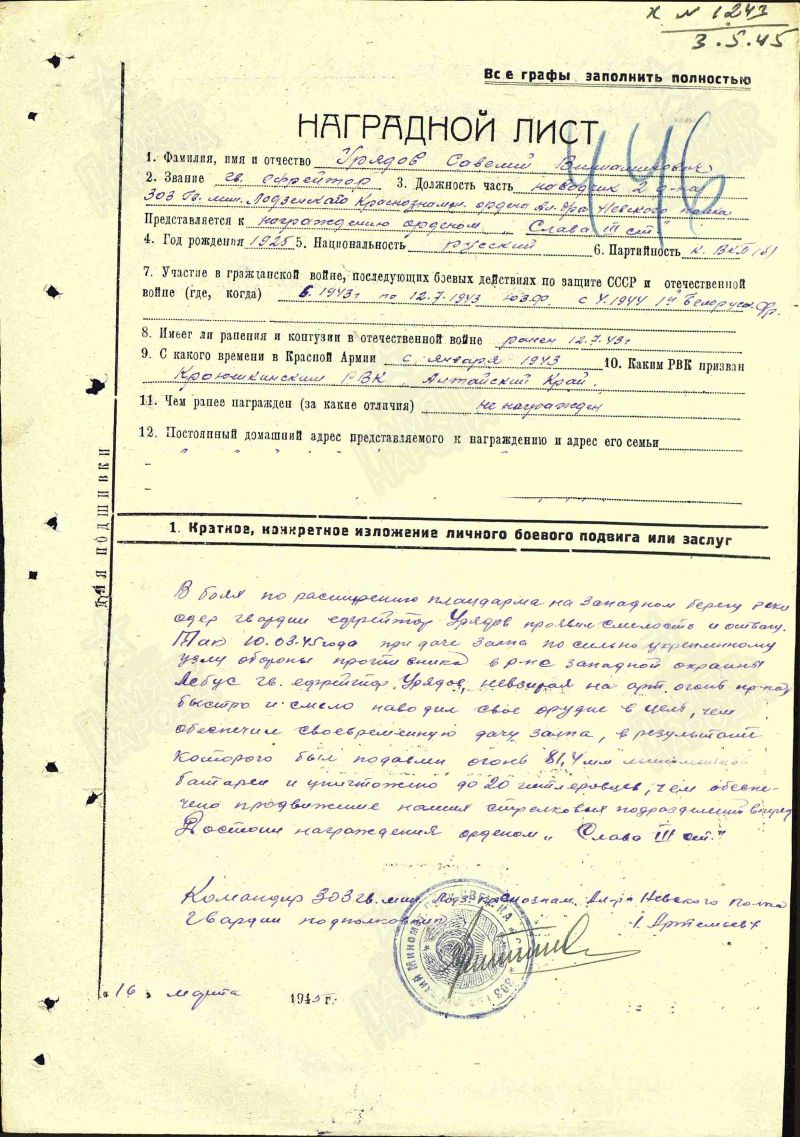 к № 1243
3.5.45
Все графы заполнить полностью
446
НАГРАДНОЙ ЛИСТ
1. Фамилия, имя и отчество Урядов Савелий
2. Звание гв. ефрейтор 3. Должность часть наводчик 2 д-на
303 Гв. мин. Лодзенского Краснознамен. ордена Ал-дра Невского полка
Представляется к награждению орденом „Слава III ст"
4. Год рождения 1925 5. Национальность русский 6. Партийность к. ВКП(б)
7. Участие в гражданской войне, последующих боевых действиях по защите СССР и отечественной
войне (где, когда) 6.1943г по 12.7.1943 ЮЗФ. с 4.1944 1й Белорусс. Фр.
8. Имеет ли ранения и контузии в отечественной войне ранен 12.7.43г
9. С какого времени в Красной Армии с января 1943 10. Каким РВК призван
РВК, Алтайский Край.
11. Чем ранее награжден (за какие отличия) не награжден
12. Постоянный домашний адрес представляемого к награждению и адрес его семьи
ДЛЯ ПОДШИВКИ
1. Краткое, конкретное изложение личного боевого подвига или заслуг
В боях по расширению плацдарма на западном берегу реки
Одер гвардии ефрейтор Урядов проявил смелость и отвагу.
Так 10.03.45 года при даче залпа по сильно укрепленному
узлу обороны противника в р-не западной окраины
Лебус гв. ефрейтор Урядов, невзирая на арт. огонь пр-ка
быстро и смело наводил свое орудие в цель, чем
обеспечил своевременную дачу залпа, в результате
которого был подавлен огонь 81,4 мм минометной
батареи и уничтожено до 20 гитлеровцев, чем обеспе-
чено продвижение наших стрелковых подразделений вперед
Достоин награждения орденом „Слава III ст."
Командир 303 гв. мин. Лодз. Краснознам. Ал-ра Невского полка
гвардии подполковник /Артемьев/
„16" марта 1945 г.